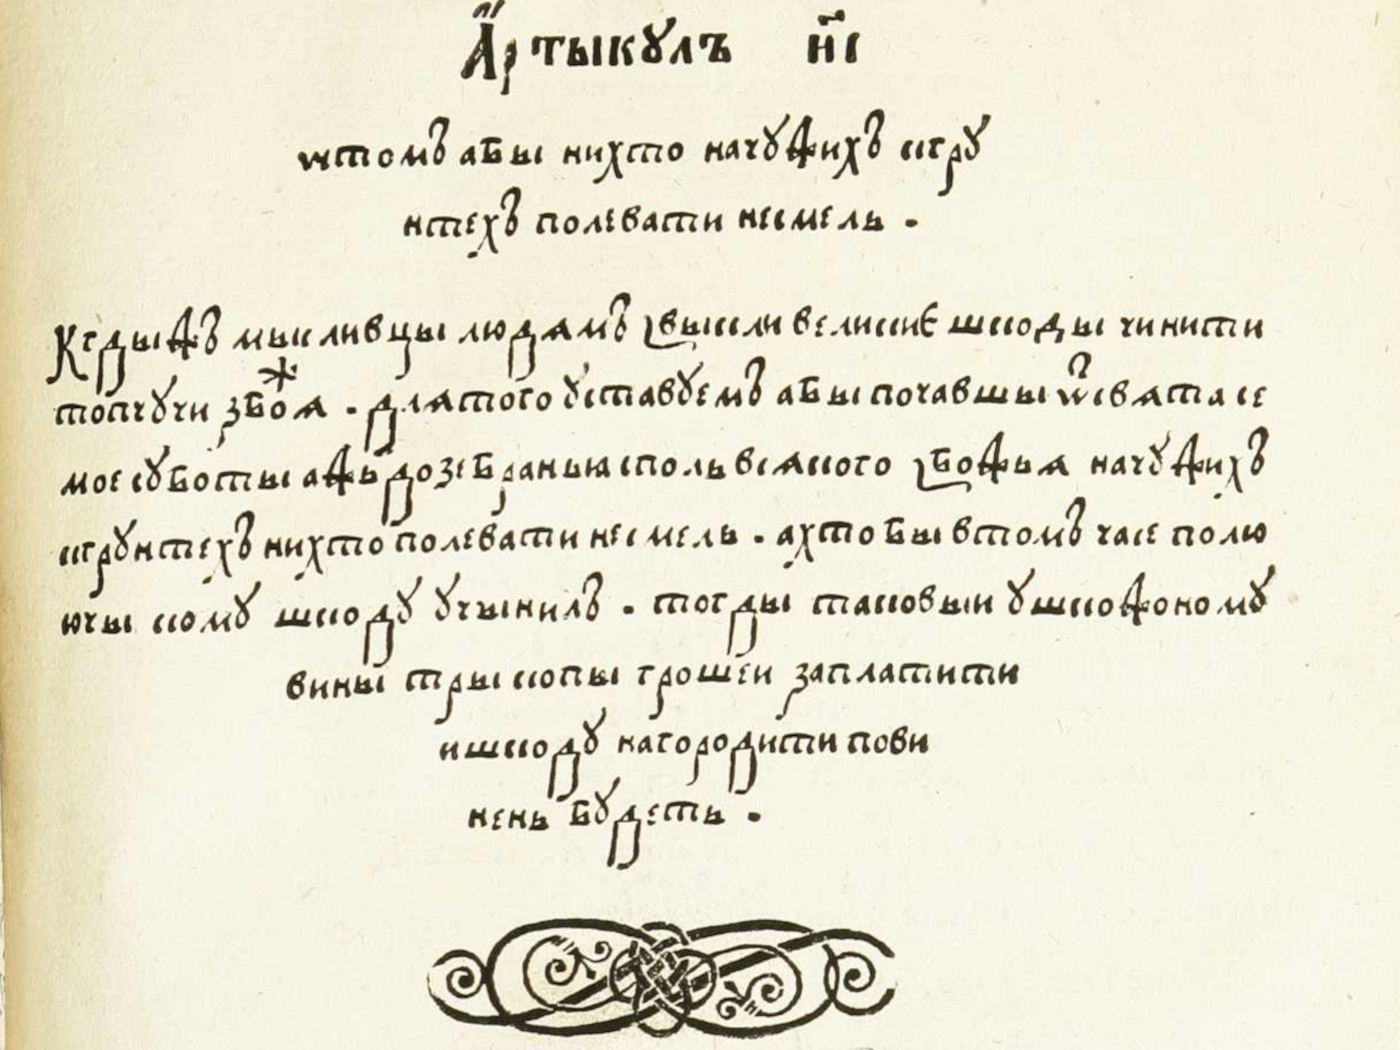 Артыкулъ н҃і
ѡтомъ абы нихто начужихъ кгру
нтехъ полевати несмель .
Кгдыжъ мысливцы людямъ звыкли великиє шкоды чинити
топчучи збожя . длятого уставуемъ абы почавшы ѿсвята се
мое суботы ажъ дозебранья споль всякого збожья начужихъ
кгрунтехъ нихто полевати несмель . ахто бы втомъ часе полю
ючы кому шкоду учынилъ . тогды таковыи ушкожоному
вины тры копы грошеи заплатити
ишкоду нагородити пови
нень будеть .